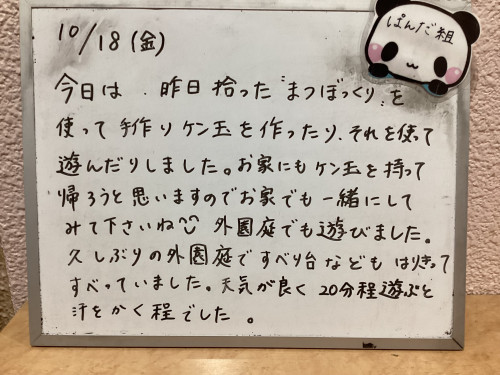 10/18(金)
ぱんだ組
今日は、昨日拾った"まつぼっくり"を
使って手作りケン玉を作ったり、それを使って
遊んだりしました。お家にもケン玉を持って
帰ろうと思いますのでお家でも一緒にして
みて下さいね 外園庭でも遊びました。
久しぶりの外園庭ですべり台なども はりきって
すべっていました。天気が良く 20分程遊ぶと
汗をかく程でした。